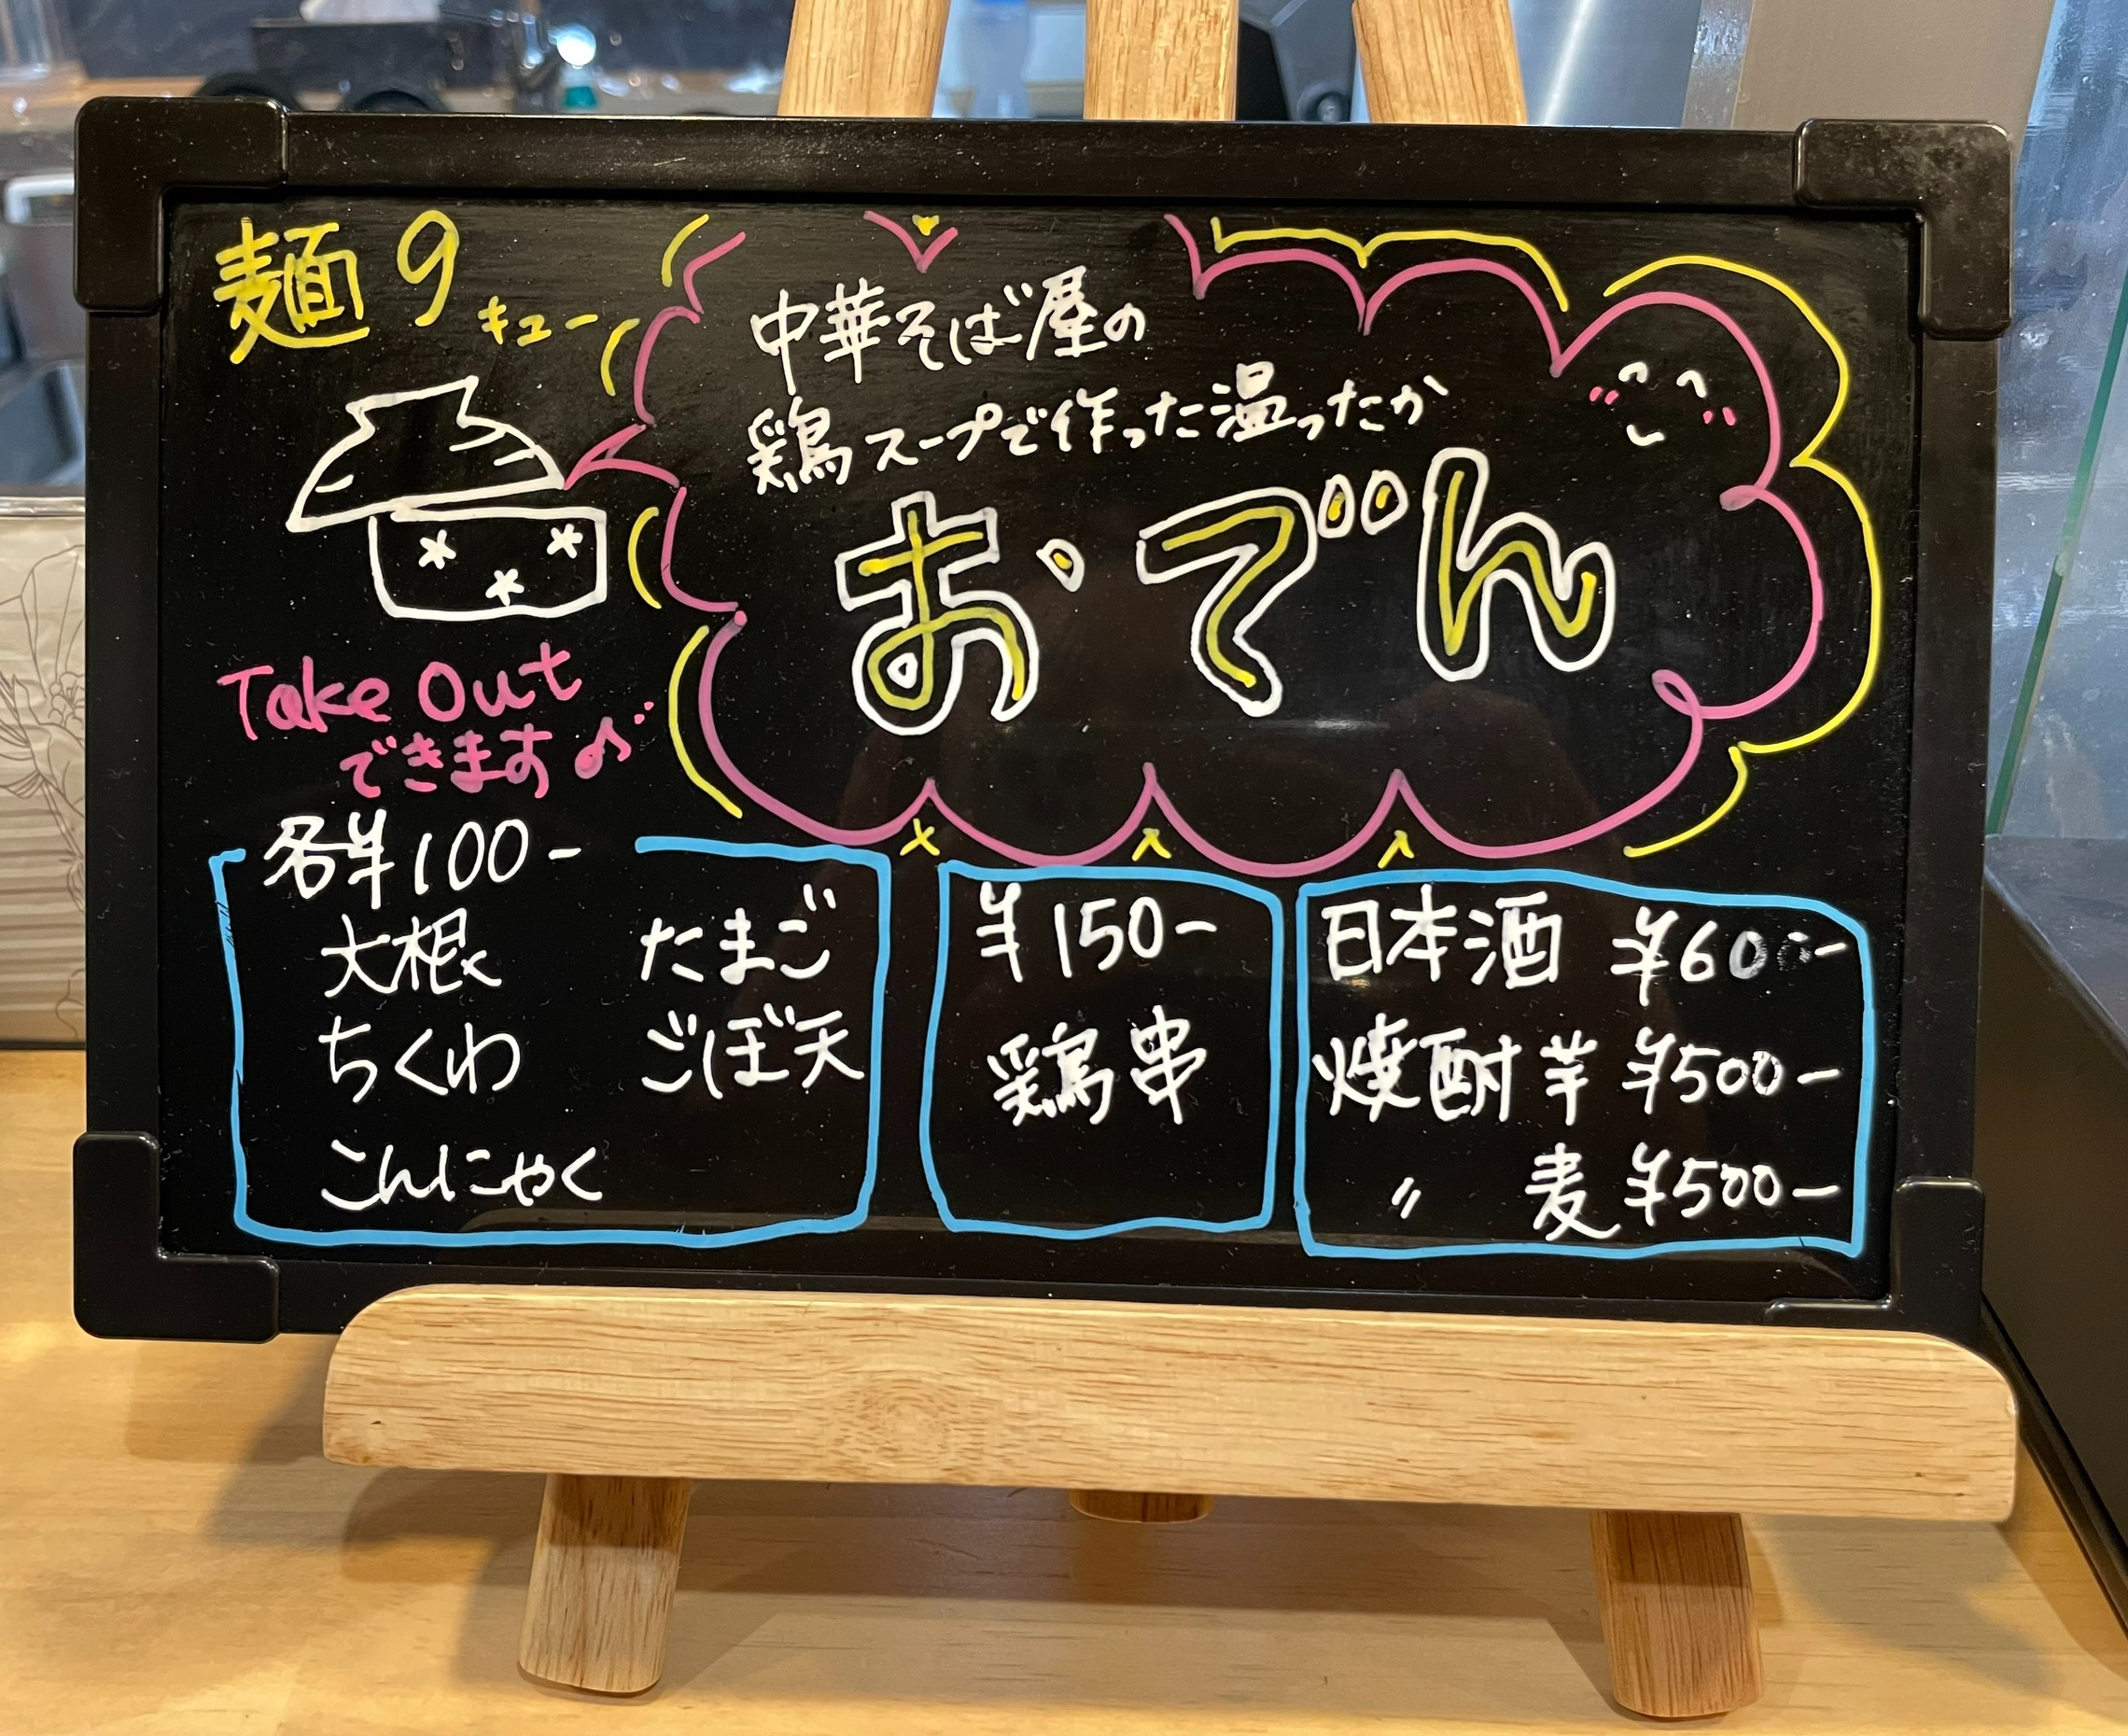 麺9 キュー
中華そば屋の
鶏スープで作った温ったか
おでん
Take Out
できます♪
各¥100-
大根 たまご
ちくわ ごぼ天
こんにゃく
¥150-
鶏串
日本酒 ¥600-
焼酎 芋 ¥500-
〃 麦 ¥500-